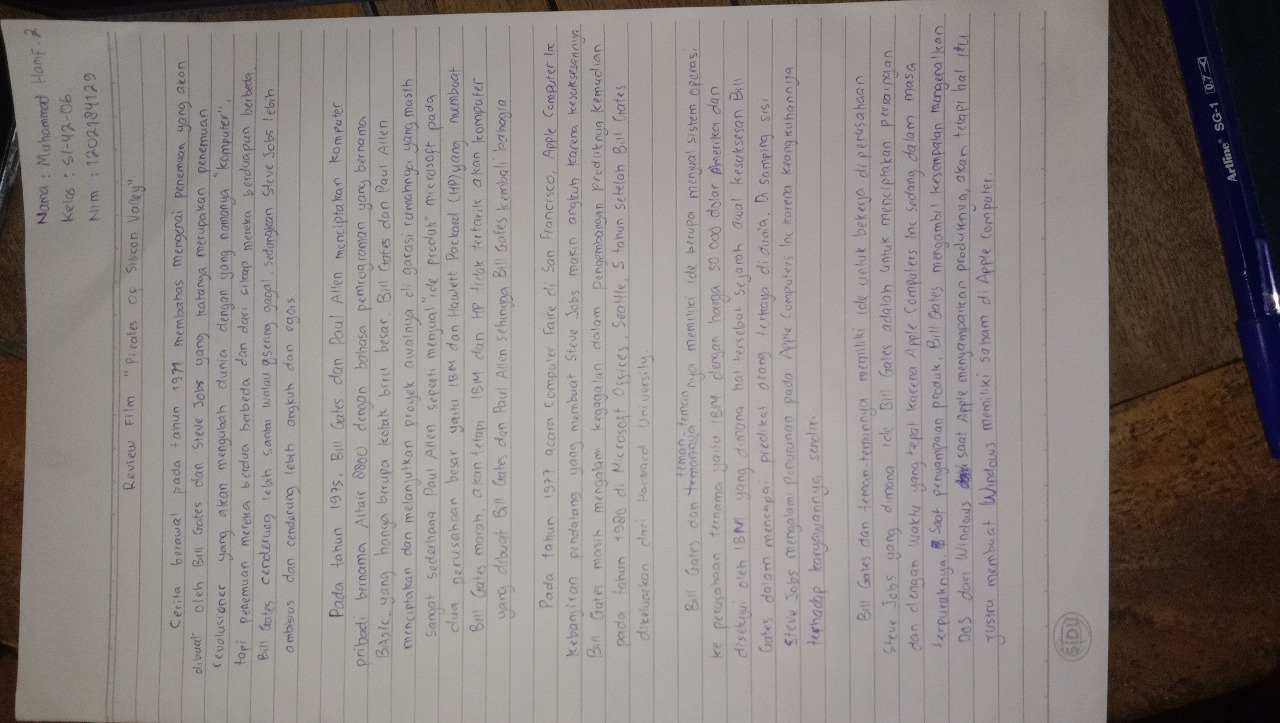 Nama : Muhammad Hanif. Z
Kelas : SI-42-06.
Nim : 1202184129
Review Film "Pirates Of Silicon Valley"
Cerita berawal pada tahun 1971 membahas mengenai penemuan yang akan
dibuat oleh Bill Gates dan Steve Jobs yang katanya merupakan penemuan
revolusioner yang akan mengubah dunia dengan yang namanya "komputer",
tapi penemuan mereka berdua berbeda dan dari sikap mereka berduapun berbeda.
Bill Gates cenderung lebih santai walau sering gagal, sedangkan Steve Jobs lebih
ambisius dan cenderung lebih angkuh dan egois.
Pada tahun 1975, Bill Gates dan Paul Allen menciptakan komputer
pribadi bernama Altair 8800 dengan bahasa pemrograman yang bernama
BASIC, yang hanya berupa kotak biru besar. Bill Gates dan Paul Allen
menciptakan dan melanjutkan proyek awalnya di garasi rumahnya yang masih
sangat sederhana. Paul Allen seperti menjual "ide produk" microsoft pada
dua perusahaan besar yaitu IBM dan Hawlett Packard (HP) yang membuat
Bill Gates marah, akan tetapi IBM dan HP tidak tertarik akan komputer
yang dibuat Bill Gates dan Paul Allen sehingga Bill Gates kembali bahagia.
Pada tahun 1977 acara Computer Faire di San Francisco, Apple Computer Inc
kebanjiran pendatang yang membuat Steve Jobs makin angkuh karena kesuksesannya
Bill Gates masih mengalami kegagalan dalam pengembangan produknya kemudian
pada tahun 1980 di Microsoft Offices, Seattle, 5 tahun setelah Bill Gates
dikeluarkan dari Harward University.
Bill Gates dan teman-teman nya memiliki ide berupa menjual sistem operasi
ke perusahaan ternama yaitu IBM dengan harga 50 000 dolar Amerika dan
disetujui oleh IBM yang dimana hal tersebut sejarah awal kesuksesan Bill
Gates dalam mencapai predikat orang terkaya di dunia. Di samping sisi
Steve Jobs mengalami penurunan pada Apple Computers Inc karena keangkuhannya
terhadap karyawannya sendiri.
Bill Gates dan teman-temannya memiliki ide untuk bekerja di perusahaan
Steve Jobs yang dimana ide Bill Gates adalah untuk menciptakan persaingan
dan dengan waktu yang tepat karena Apple Computers Inc sedang dalam masa
terpuruknya. Saat penyampaian produk, Bill Gates mengambil kesempatan mengenalkan
DOS dari Windows saat Apple menyampaikan produknya, akan tetapi hal itu
justru membuat Windows memiliki saham di Apple Computer.
SIDU
Artline SG-1 0.7